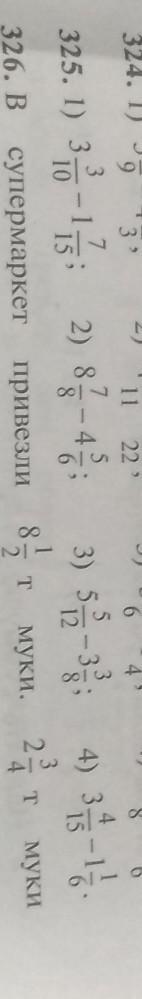 324. 1)
325. 1) 3 3/10 − 1 7/15; 2) 8 7/8 − 4 5/6; 3) 5 5/12 − 3 3/8; 4) 3 4/15 − 1 1/6.
326. В супермаркет привезли 8 1/2 т муки. 2 3/4 т муки